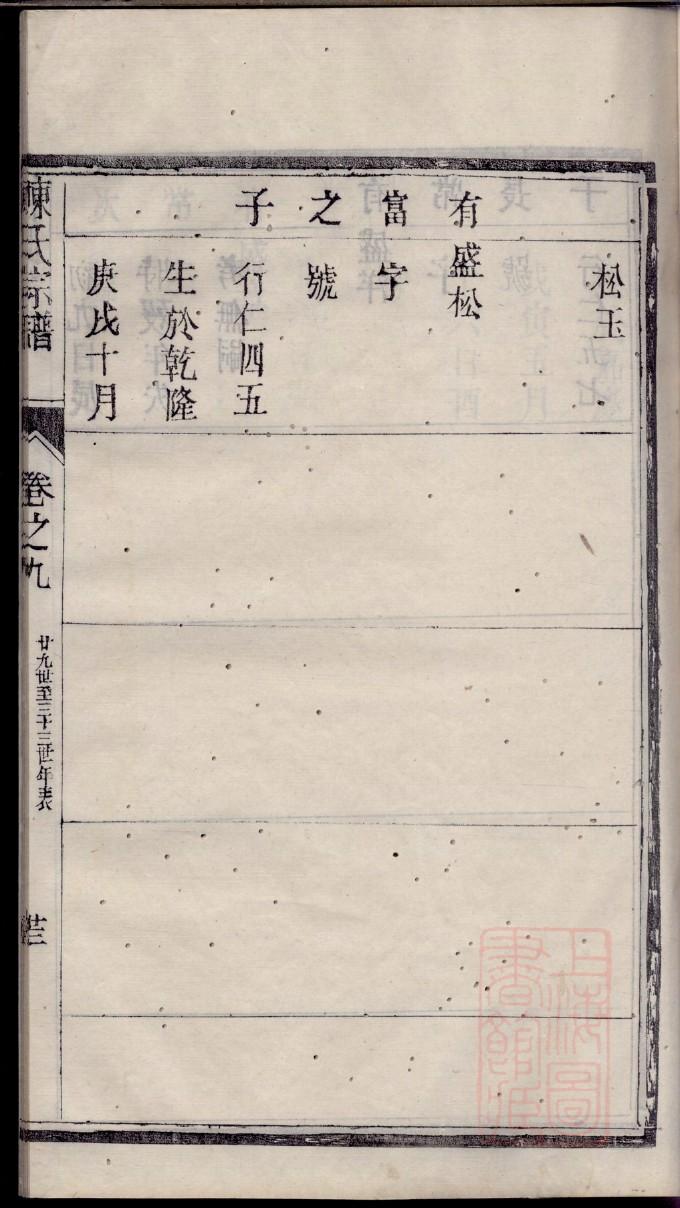 松玉
有盛松
富字
之號
子行仁四五
生於乾隆
庚戌十月
陳氏宗譜
卷之九
廿九世至三十三世年表